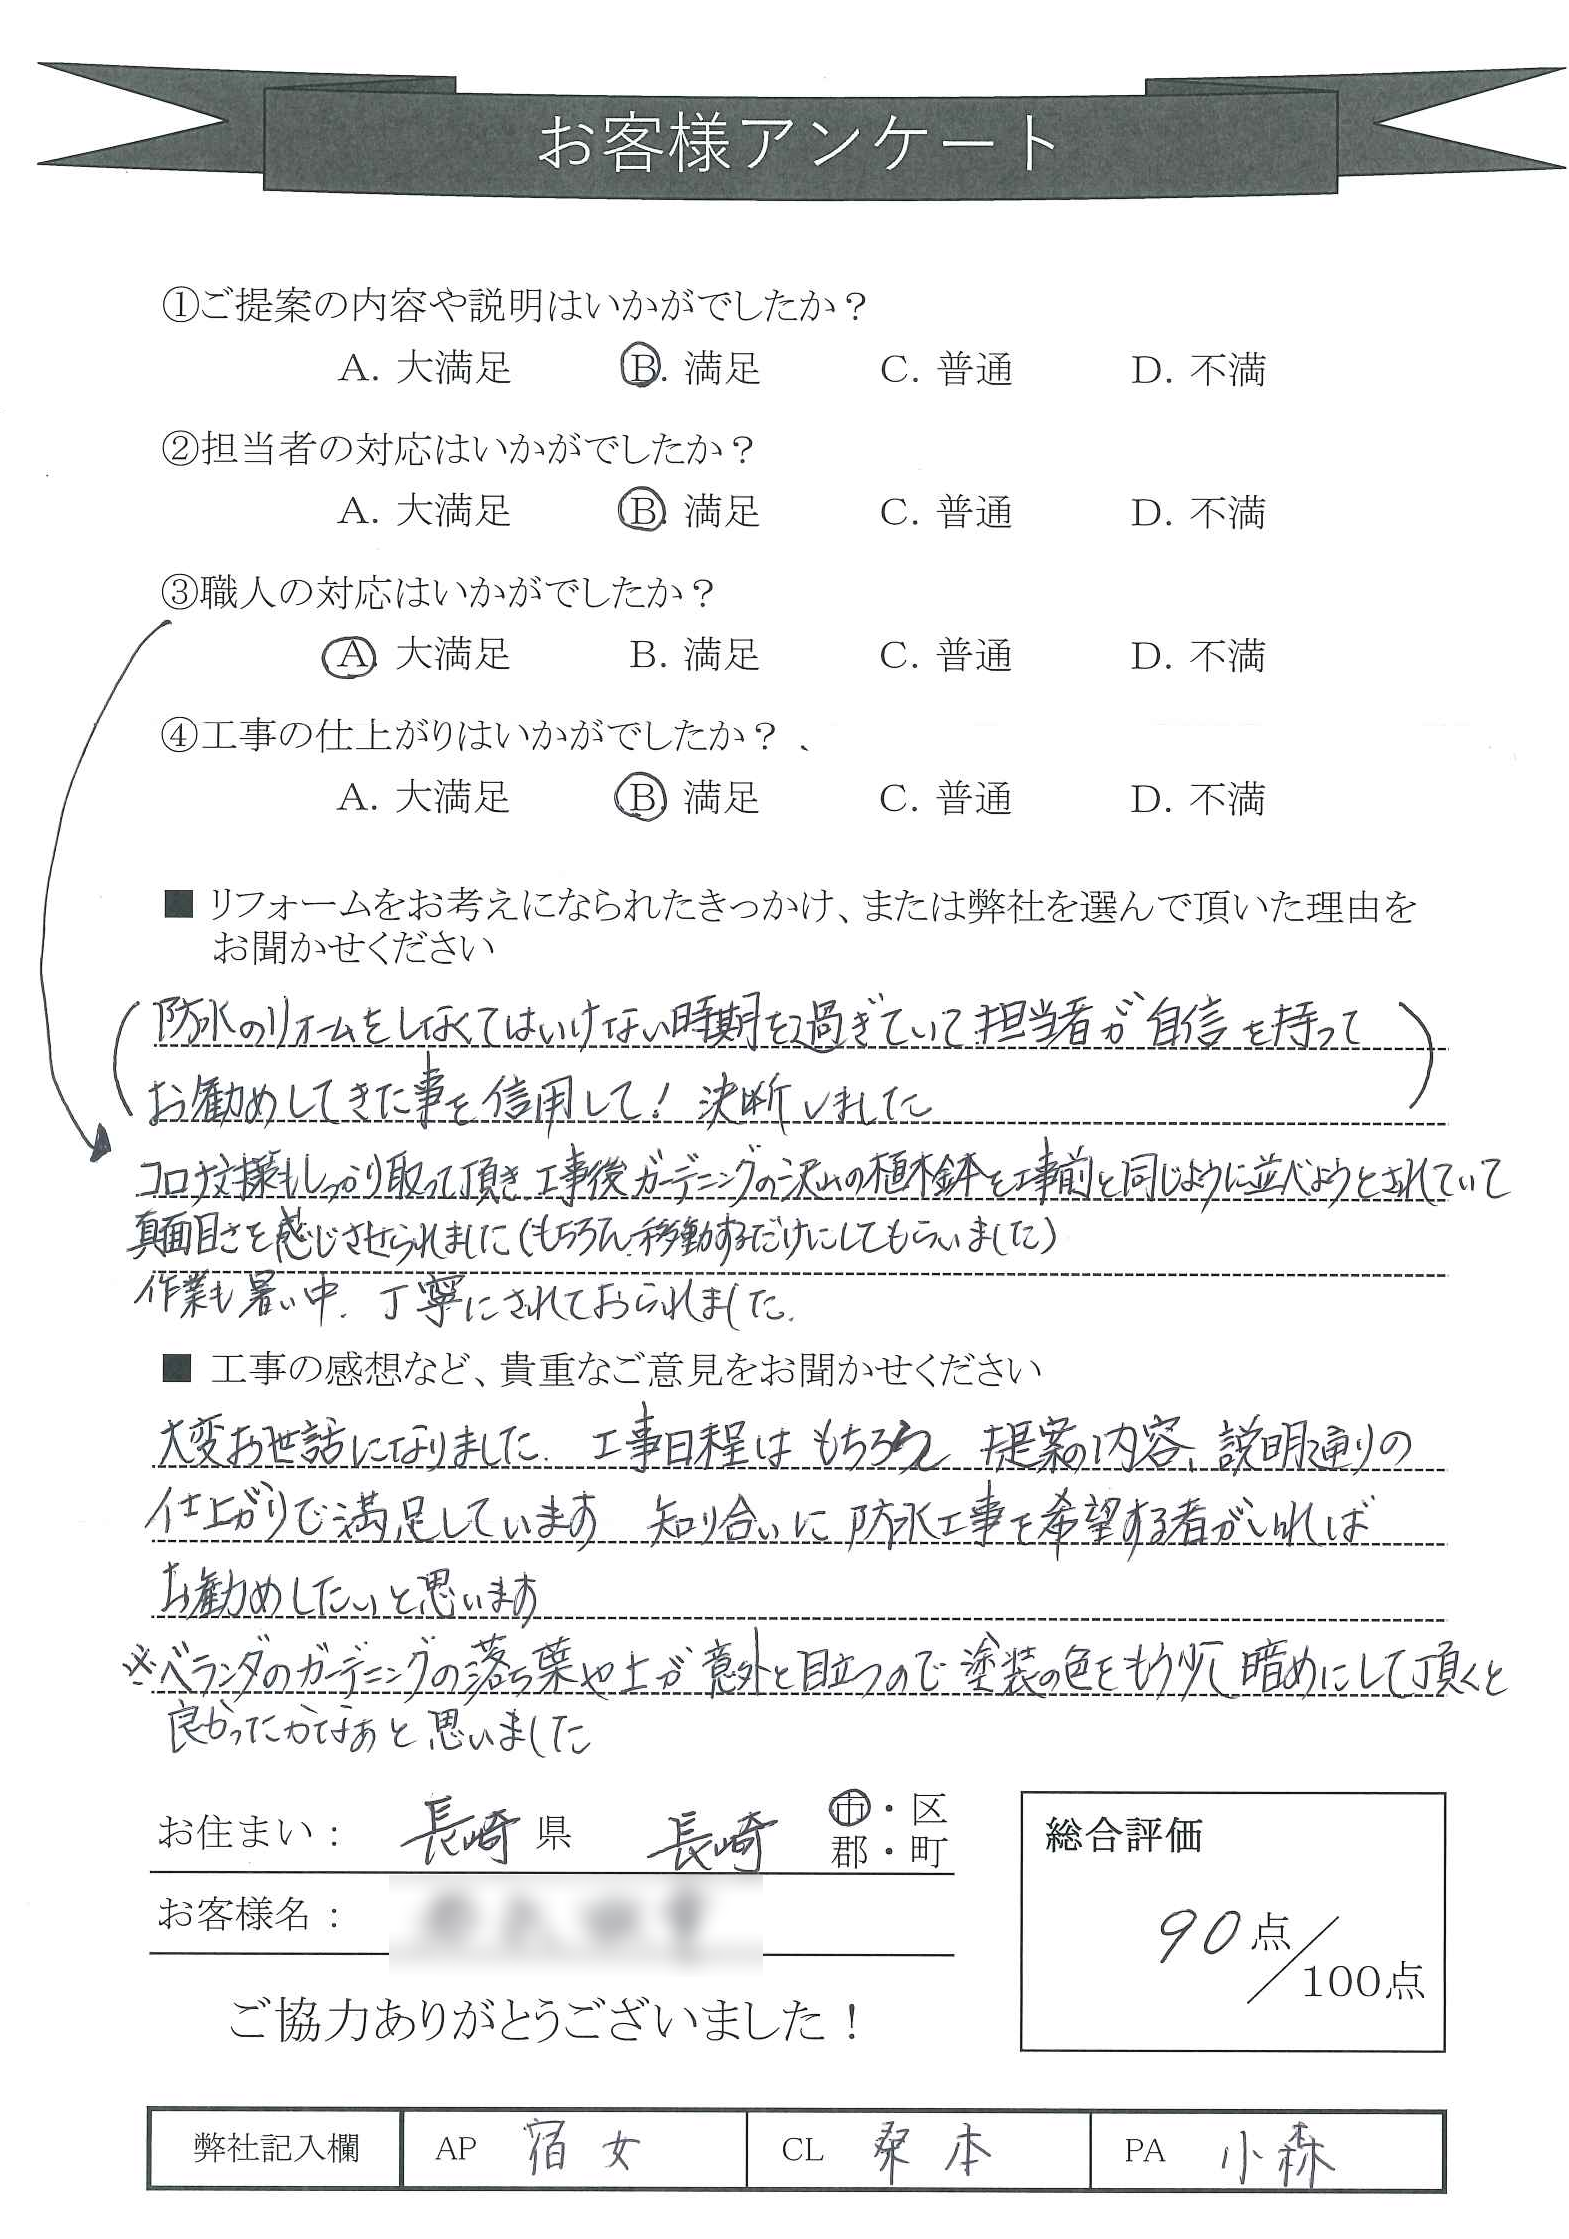 お客様アンケート
①ご提案の内容や説明はいかがでしたか？
A. 大満足 B. 満足 C. 普通 D. 不満
②担当者の対応はいかがでしたか？
A. 大満足 B. 満足 C. 普通 D. 不満
③職人の対応はいかがでしたか？
A. 大満足 B. 満足 C. 普通 D. 不満
④工事の仕上がりはいかがでしたか？
A. 大満足 B. 満足 C. 普通 D. 不満
■ リフォームをお考えになられたきっかけ、または弊社を選んで頂いた理由を
お聞かせください
(防水のリォームをしなくてはいけない時期を過ぎていて担当者が自信を持って
お勧めしてきた事を信用して！決断しました)
コロナ対策もしっかり取って頂き、工事後ガーデニングの沢山の植木鉢を工事前と同じように並べようとされていて
真面目さを感じさせられました(もちろん移動するだけにしてもらいました)
作業も暑い中、丁寧にされておられました。
■ 工事の感想など、貴重なご意見をお聞かせください
大変お世話になりました。工事日程はもちろん 提案の内容、説明通りの
仕上がりで満足しています 知り合いに防水工事を希望する者がいれば
お勧めしたいと思います
※ベランダのガーデニングの落ち葉や土が意外と目立つので塗装の色をもう少し暗めにして頂くと
良かったかなぁと思いました
お住まい： 長崎 県 長崎 市・区
郡・町
お客様名：
総合評価
90点／100点
ご協力ありがとうございました！
弊社記入欄 AP 宿女 CL 桑本 PA 小森